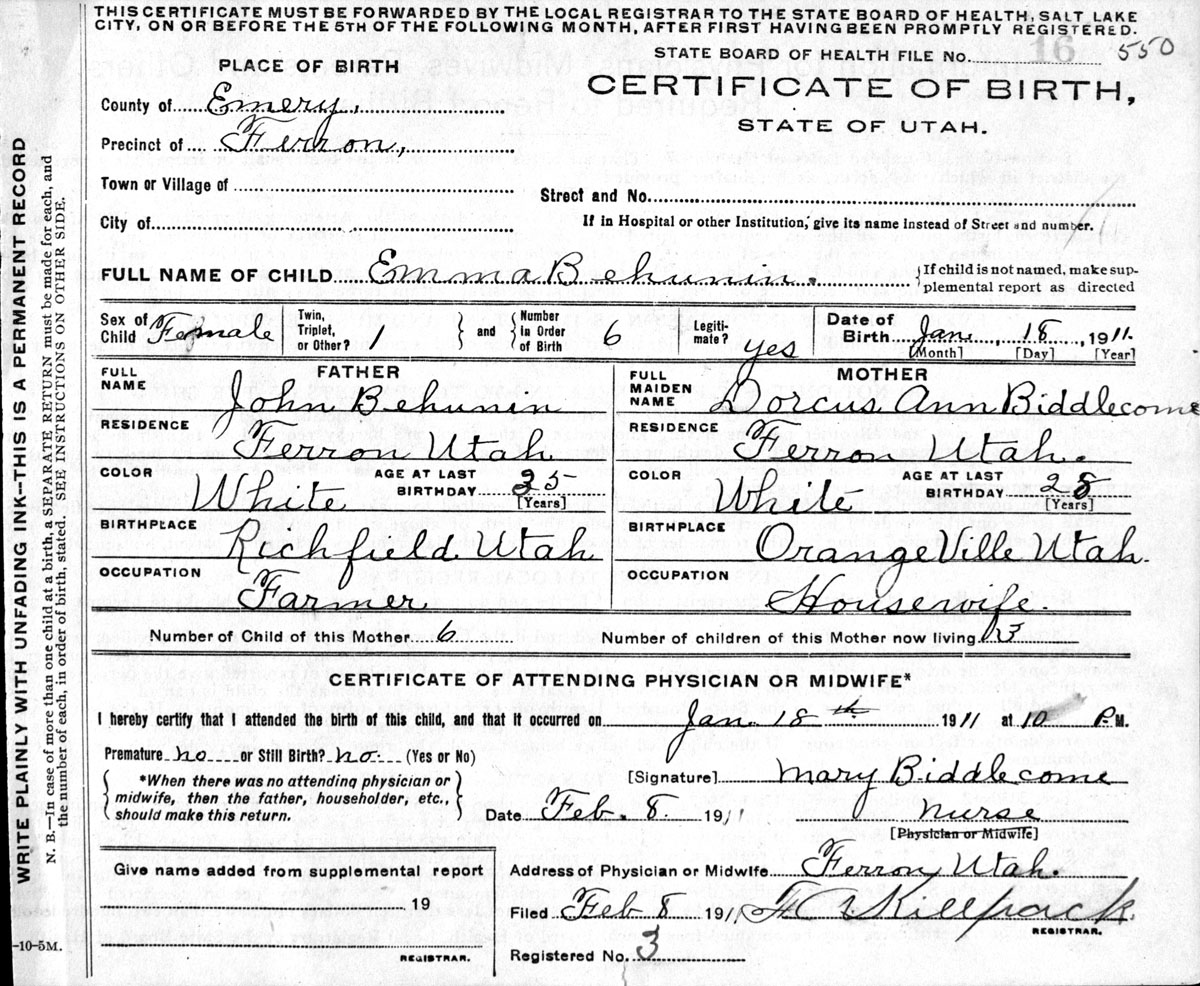 THIS CERTIFICATE MUST BE FORWARDED BY THE LOCAL REGISTRAR TO THE STATE BOARD OF HEALTH, SALT LAKE
CITY, ON OR BEFORE THE 5TH OF THE FOLLOWING MONTH, AFTER FIRST HAVING BEEN PROMPTLY REGISTERED.
STATE BOARD OF HEALTH FILE No. 16 550
PLACE OF BIRTH
CERTIFICATE OF BIRTH,
STATE OF UTAH.
County of Emery,
Precinct of Ferron,
Town or Village of
Street and No.
City of
If in Hospital or other Institution, give its name instead of Street and number.
FULL NAME OF CHILD Emma Behunin. { If child is not named, make sup-
plemental report as directed
Sex of Child Female
Twin, Triplet, or Other? 1 } and { Number in Order of Birth 6
Legiti-mate? yes
Date of Birth Jan. 18, 1911.
[Month] [Day] [Year]
FATHER
FULL NAME John Behunin
RESIDENCE Ferron Utah.
COLOR White AGE AT LAST BIRTHDAY 35 [Years]
BIRTHPLACE Richfield. Utah
OCCUPATION Farmer
MOTHER
FULL MAIDEN NAME Dorcus Ann Biddlecome
RESIDENCE Ferron Utah.
COLOR White AGE AT LAST BIRTHDAY 28 [Years]
BIRTHPLACE OrangeVille Utah.
OCCUPATION Housewife.
Number of Child of this Mother 6 Number of children of this Mother now living 3
CERTIFICATE OF ATTENDING PHYSICIAN OR MIDWIFE*
I hereby certify that I attended the birth of this child, and that it occurred on Jan. 18th 1911 at 10 P.M.
Premature? no or Still Birth? no. (Yes or No)
{ *When there was no attending physician or
midwife, then the father, householder, etc.,
should make this return. }
[Signature] Mary Biddlecome
Date Feb. 8. 1911 nurse
[Physician or Midwife]
Give name added from supplemental report
19
REGISTRAR.
Address of Physician or Midwife Ferron Utah.
Filed Feb 8 1911 Killpack
REGISTRAR.
Registered No. 3
-10-5M.
WRITE PLAINLY WITH UNFADING INK—THIS IS A PERMANENT RECORD
N. B.—In case of more than one child at a birth, a SEPARATE RETURN must be made for each, and
the number of each, in order of birth, stated. SEE INSTRUCTIONS ON OTHER SIDE.